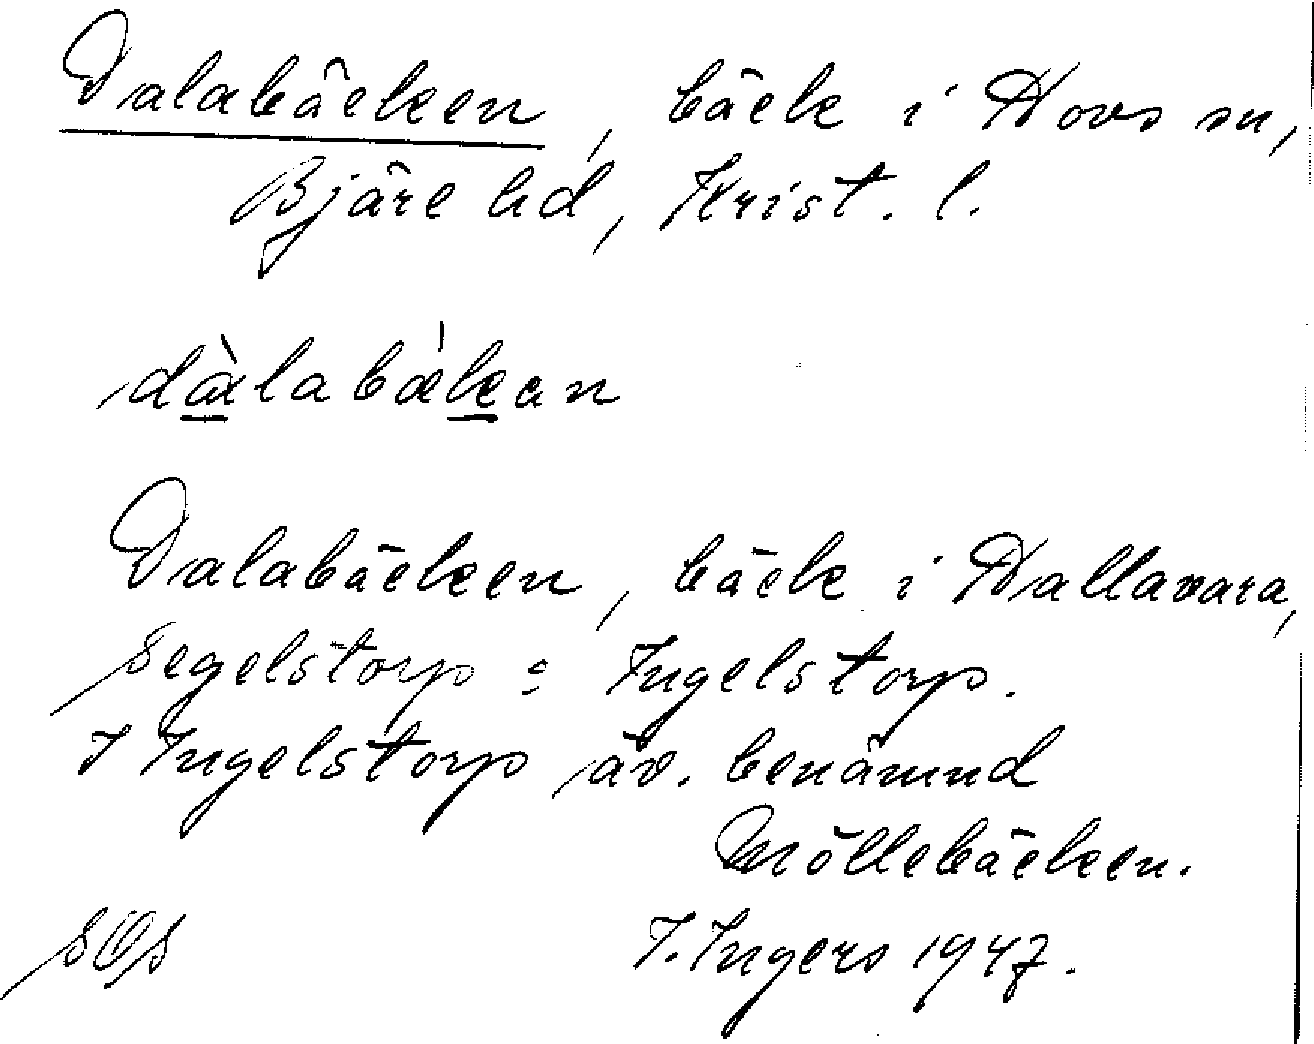 Dalabäcken, bäck i Hovs sn,
Bjäre hd, Krist. l.
dàlabæ̀kan
Dalabäcken, bäck i Hallavara,
Segelstorp o Ingelstorp.
I Ingelstorp äv. benämnd
Möllebäcken.
SOS I. Ingers 1947.